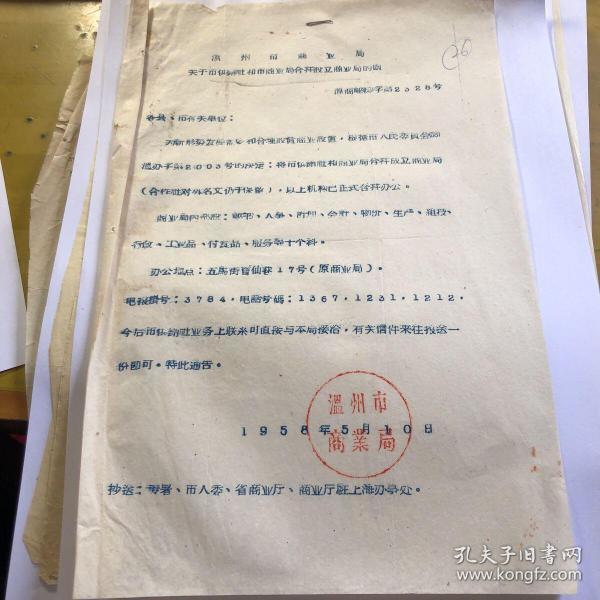 温州市商业局
关于市供销社和市商业局合并成立商业局的通
字第2028号
各县、市有关单位:
为适应形势发展需要和合理设置商业设置,根据市人民委员会
温办字第2003号的决定:将市供销社和商业局合并成立商业局
(合作社对外名义仍予保留),以上机构已正式合并办公。
商业局内部设:秘书、人事、计划、会计、物价、生产、组技、
行政、工业品、付食品、服务等十个科。
办公地点:五馬街百仙巷17号(原商业局)。
电报掛号:3784,电话号碼:1367,1231,1212,
今后市供销社业务上联系可直接与本局接洽,有关信件来往投送一
份即可。特此通告。
温州市
商業局
1958年5月10日
抄送:专署、市人委、省商业厅、商业厅驻上海办事处。
26
孔夫子旧书网
www.kongfz.com